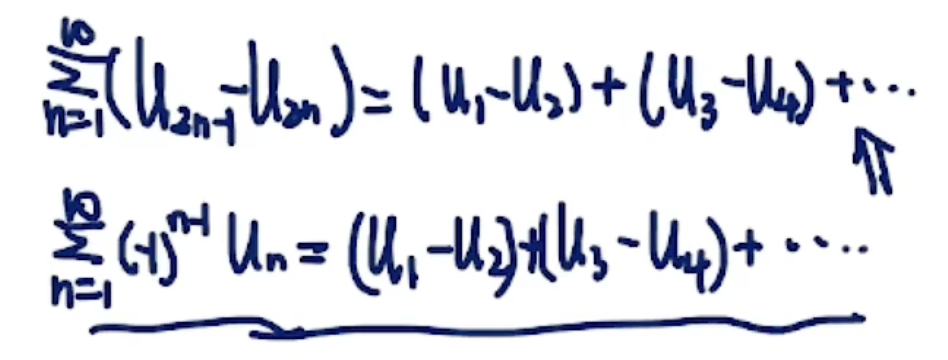 ∑_{n=1}^{∞}(U_{2n-1}-U_{2n})=(U_1-U_2)+(U_3-U_4)+⋯
⇑
∑_{n=1}^{∞}(-1)^{n-1}U_n=(U_1-U_2)+(U_3-U_4)+⋯⋯